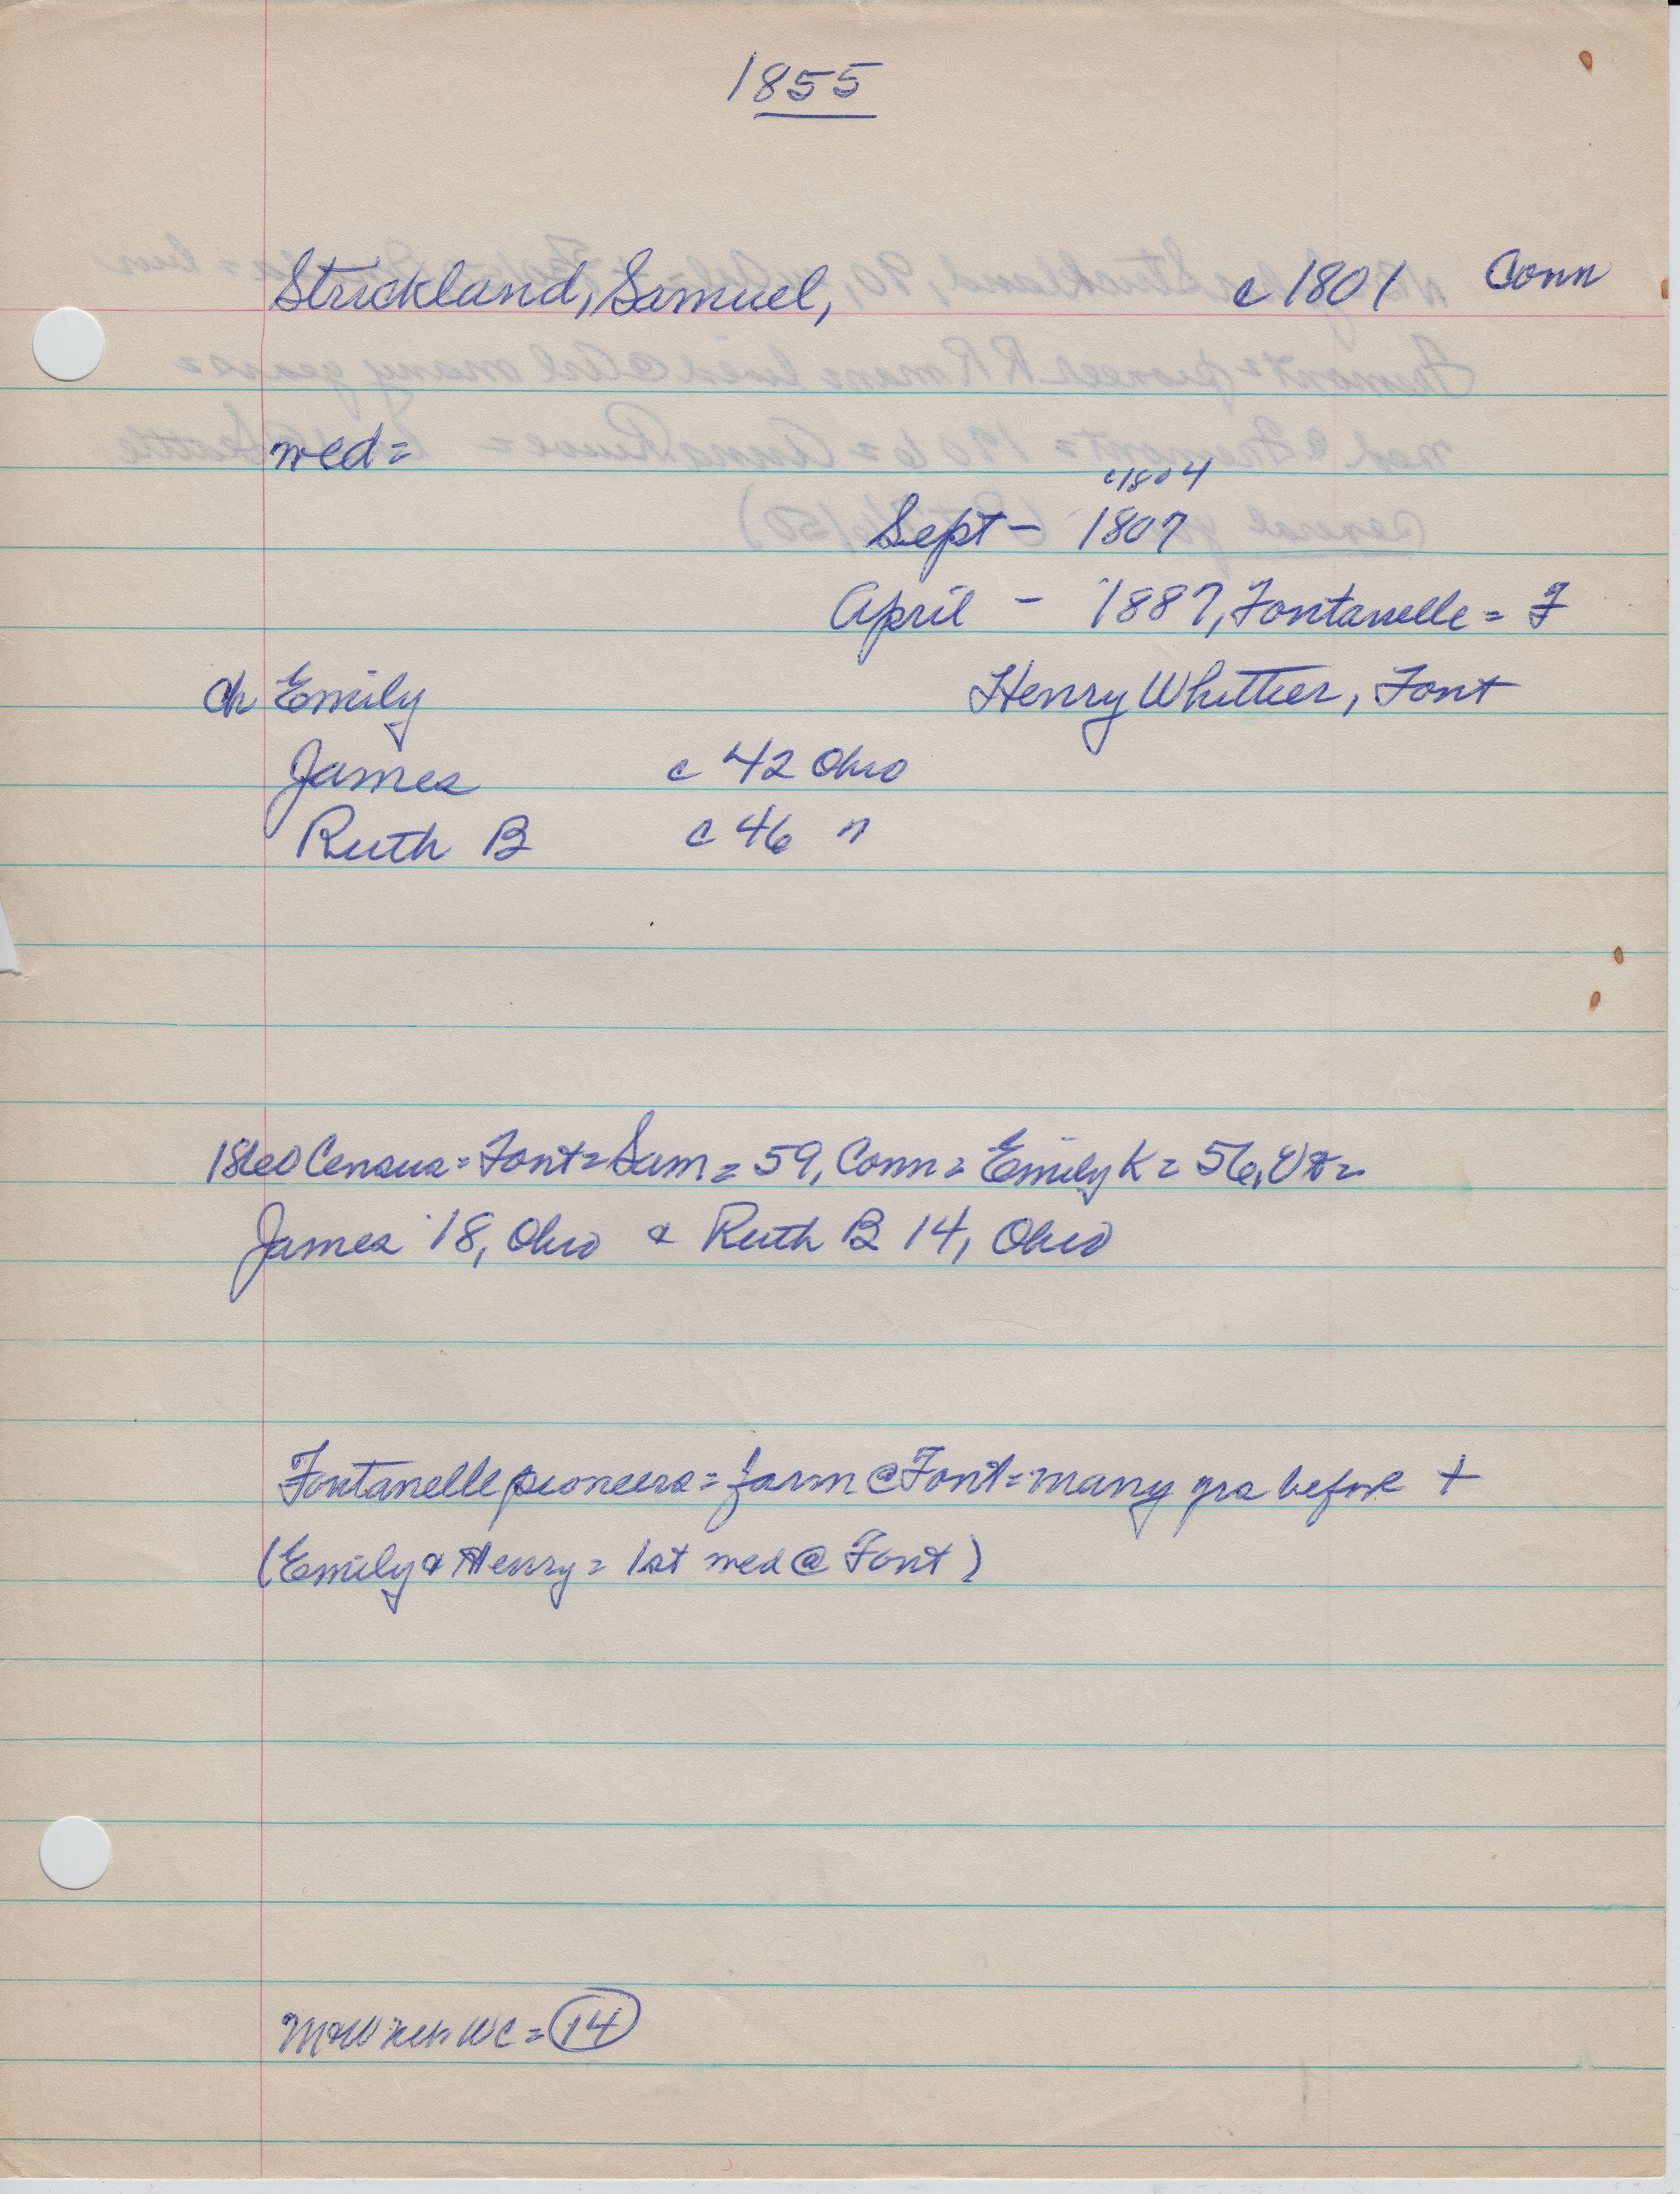 1855
Strickland, Samuel, c 1801 Conn
med =
c1804
Sept - 1807
April - 1887, Fontanelle = F
ch Emily Henry Whittier, Font
James c 42 Ohio
Ruth B c 46 "
1860 Census = Font = Sam = 59, Conn = Emily K = 56, Vt =
James 18, Ohio & Ruth B 14, Ohio
Fontanelle pioneers = farm @ Font = many yrs before +
(Emily & Henry = 1st med @ Font)
WC = 14